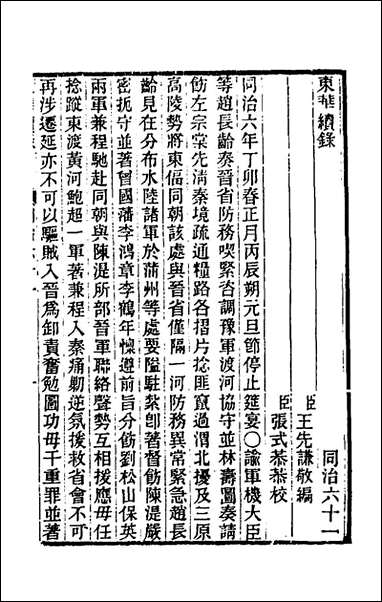 東華續錄
同治六十一
臣王先謙敬編
臣張式恭恭校
同治六年丁卯春正月丙辰朔元旦節停止筵宴○諭軍機大臣
等趙長齡奏晉省防務喫緊咨調豫軍渡河協守並林壽圖奏請
飭左宗棠先清秦境疏通糧路各摺片捻匪竄過渭北擾及三原
高陵勢將東偪同朝該處與晉省僅隔一河防務異常緊急趙長
齡見在分布水陸諸軍於蒲州等處要隘駐紮卽著督飭陳湜嚴
密扼守並著曾國藩李鴻章李鶴年懍遵前旨分飭劉松山保英
兩軍兼程馳赴同朝與陳湜所部晉軍聯絡聲勢互相援應毋任
捻蹤東渡黃河鮑超一軍著兼程入秦痛剿逆氛援救省會不可
再涉遷延亦不可以驅賊入晉爲卸責奮勉圖功毋干重罪並著